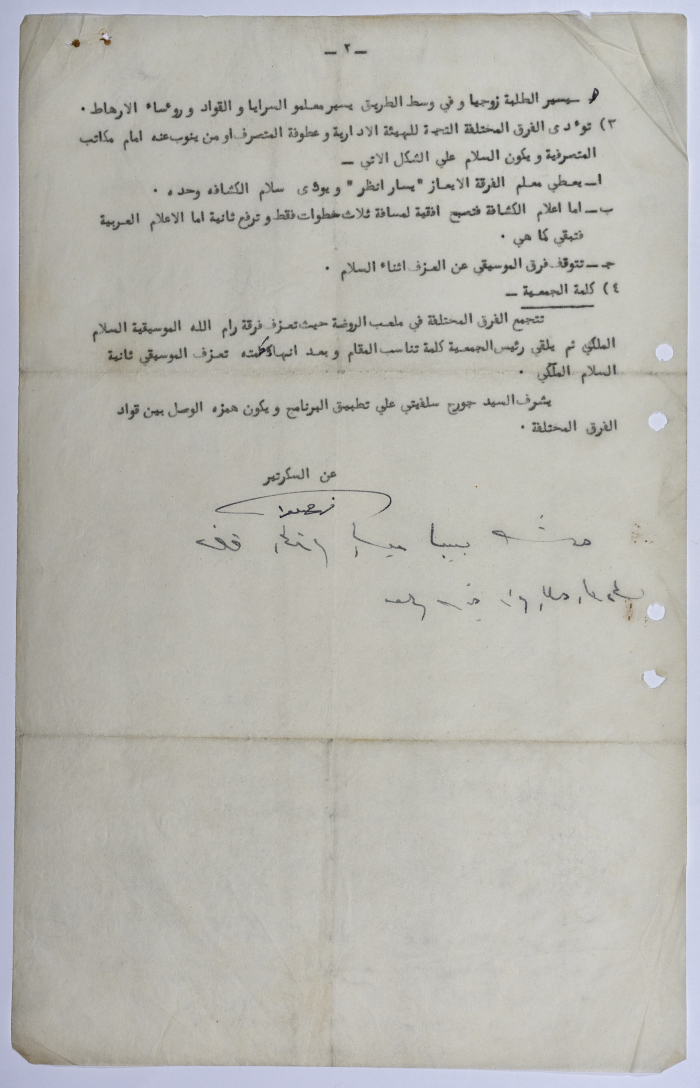 — ٢ —
هـ — يسير الطلبة زوجيا و في وسط الطريق يسير معلمو السرايا و القواد و روءساء الارهاط ٠
٣) توءدى الفرق المختلفة التحية للهيئة الادارية و عطوفة المتصرف او من ينوب عنه امام مكاتب
المتصرفية و يكون السلام علي الشكل الاتي —
ا — يعطي معلم الفرقة الايعاز "يسار انظر" و يوءدى سلام الكشافه وحده ٠
ب — اما اعلام الكشافة فتصبح افقية لمسافة ثلاث خطوات فقط و ترفع ثانية اما الاعلام العربية
فتبقي كما هي ٠
جـ — تتوقف فرق الموسيقي عن العزف اثناء السلام ٠
٤) كلمة الجمعية —
تتجمع الفرق المختلفة في ملعب الروضة حيث تعزف فرقة رام الله الموسيقية السلام
الملكي ثم يلقي رئيس الجمعية كلمة تناسب المقام و بعد انهاء كلمته تعزف الموسيقي ثانية
السلام الملكي ٠
يشرف السيد جورج سلفيتي علي تطبيق البرنامج و يكون همزه الوصل بين قواد
الفرق المختلفة ٠
عن السكرتير